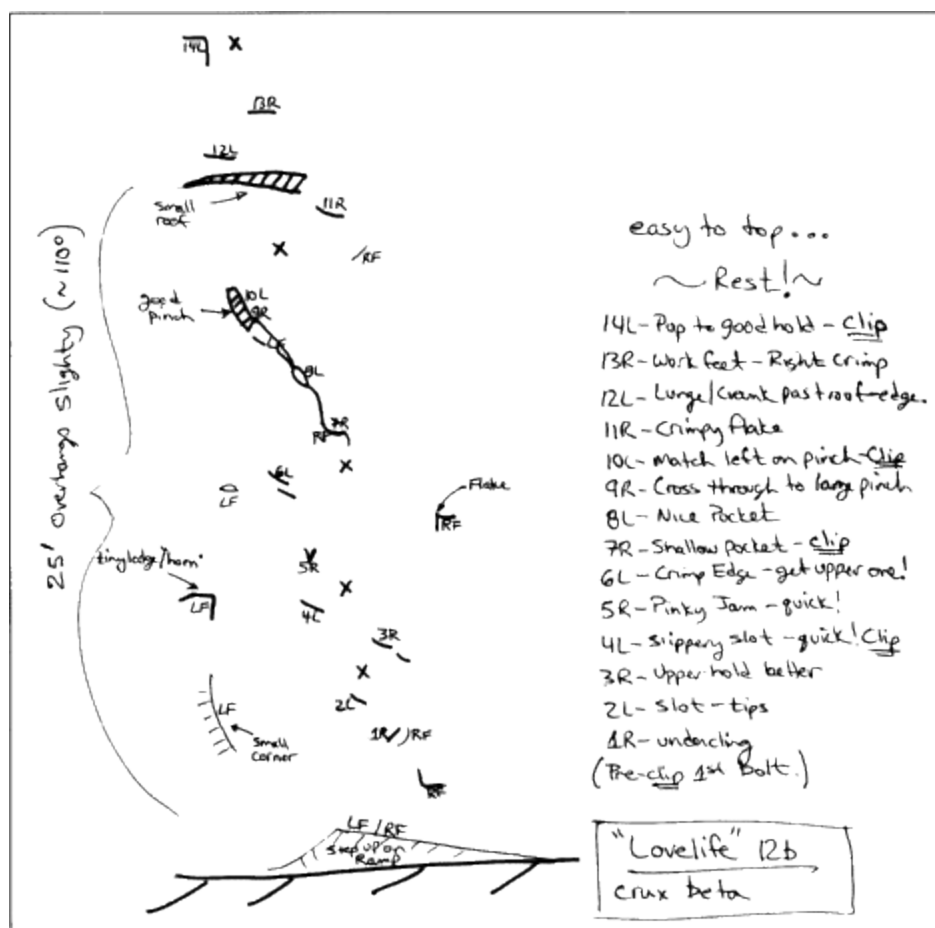 14L
X
13R
12L
small
roof
11R
X
RF
25' overhangs slighty (~110°)
good
pinch
10L
9R
LF
8L
7R
RF
X
6L
LF
Flake
RF
5R
X
tiny ledge/"horn"
LF
4L
3R
X
2L
LF
small
corner
1R
RF
RF
LF/RF
step up on
Ramp
easy to top...
~Rest!~
14L-Pop to good hold-Clip
13R-Work feet-Right Crimp
12L-Lunge/Crank past roof-edge.
11R-Crimpy flake
10L-Match left on pinch-Clip
9R-Cross through to large pinch
8L-Nice Pocket
7R-Shallow pocket-clip
6L-Crimp Edge-get upper one!
5R-Pinky Jam-quick!
4L-Slippery slot-quick! Clip
3R-Upper hold better
2L-Slot-tips
1R-undercling
(Pre-clip 1st Bolt.)
"Lovelife" 12b
crux beta